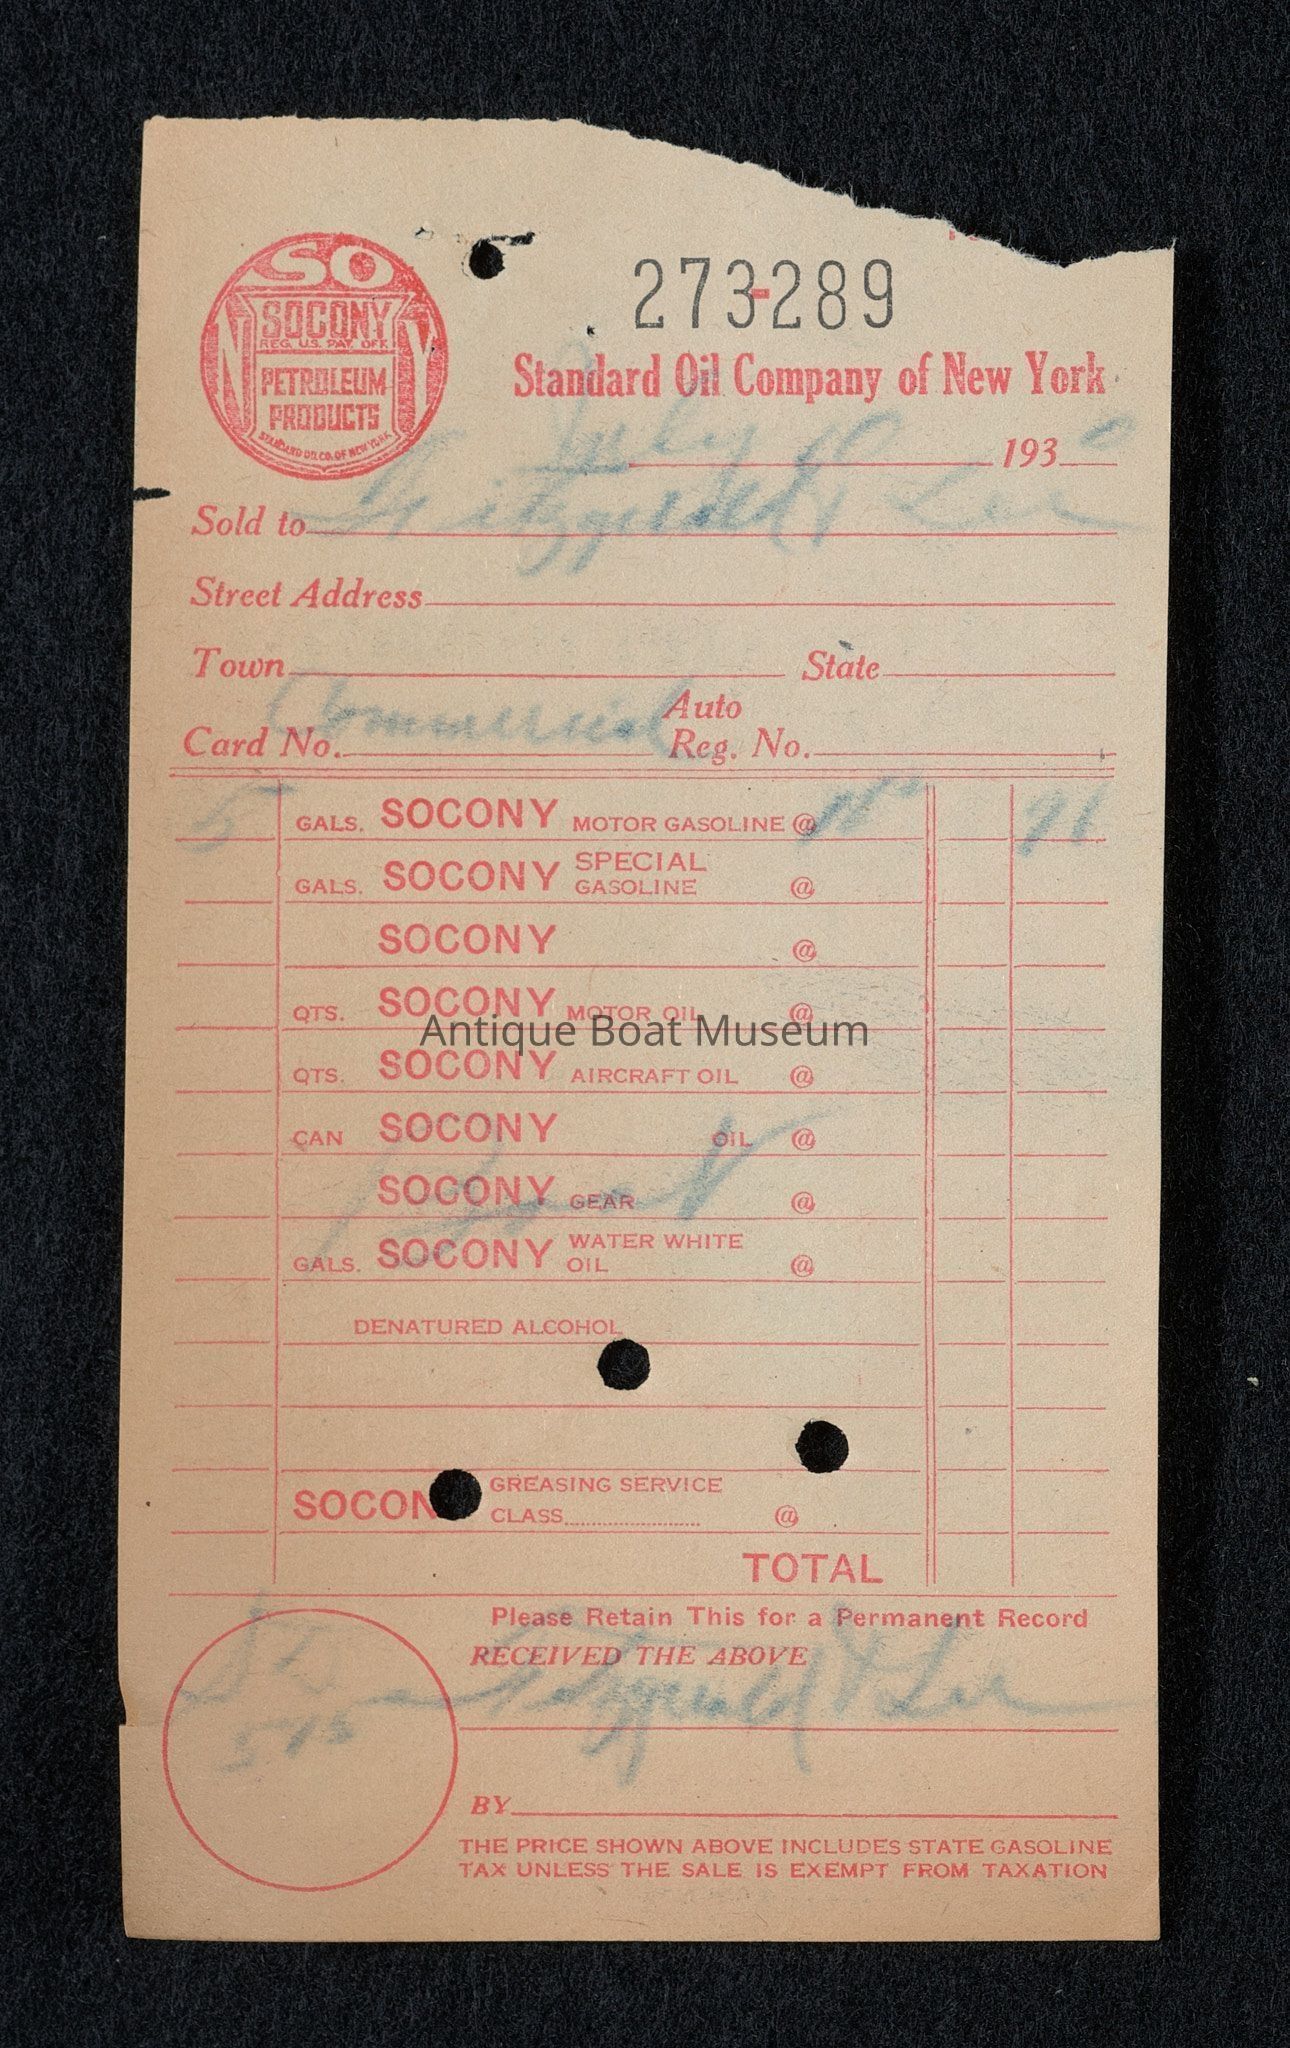 SO
NY
SOCONY
REG. U.S. PAT. OFF.
PETROLEUM
PRODUCTS
STANDARD OIL CO. OF NEW YORK
273-289
Standard Oil Company of New York
July 193 0
Sold to Fitzgerald & Lee
Street Address
Town State
Card No. Commercial Auto Reg. No.
5 GALS. SOCONY MOTOR GASOLINE @ 91
GALS. SOCONY SPECIAL GASOLINE @
SOCONY @
QTS. SOCONY MOTOR OIL @
Antique Boat Museum
QTS. SOCONY AIRCRAFT OIL @
CAN SOCONY OIL @
SOCONY GEAR @
GALS. SOCONY WATER WHITE OIL @
DENATURED ALCOHOL
SOCON GREASING SERVICE
CLASS @
TOTAL
Please Retain This for a Permanent Record
RECEIVED THE ABOVE
Fitzgerald & Lee
BY
THE PRICE SHOWN ABOVE INCLUDES STATE GASOLINE
TAX UNLESS THE SALE IS EXEMPT FROM TAXATION